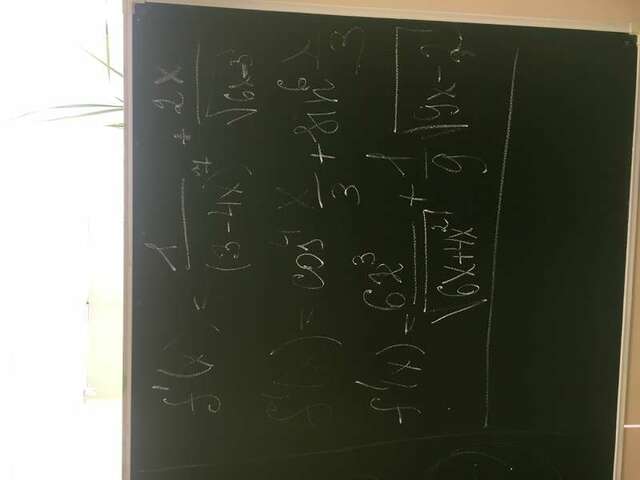 f'(x) = 1/(3-4x)⁷ + 2x/√(6x-3)
f'(x) = cos⁴ x/3 + sin⁶ x/3
f'(x) = 6x³/√(6x+4x²) + 1/9 √(9x-2)